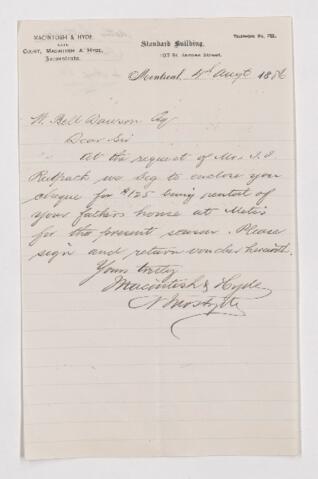 MACINTOSH & HYDE,
LATE
COURT, MACINTOSH & HYDE,
Accountants.
Standard Building,
157 St. James Street.
TELEPHONE No.
Montreal, 4th Augt 1886
W. Bell Dawson Esq
Dear Sir
At the request of Mr. J. S.
we beg to enclose you
cheque for $125 being rental of
your father's house at Metis
for the present season. Please
sign and return voucher herewith.
Yours truly
Macintosh & Hyde